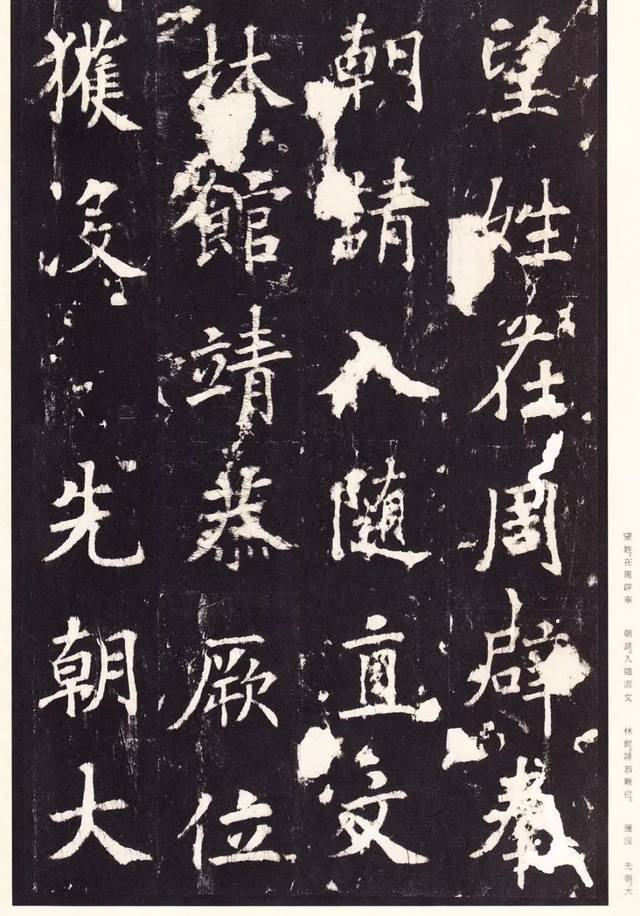 望姓在周辟奉
朝請入隨直文
林館靖恭厥位
獲沒先朝大
望姓在周辟奉 朝請入隨直文 林館靖恭厥位。 獲沒 先朝大